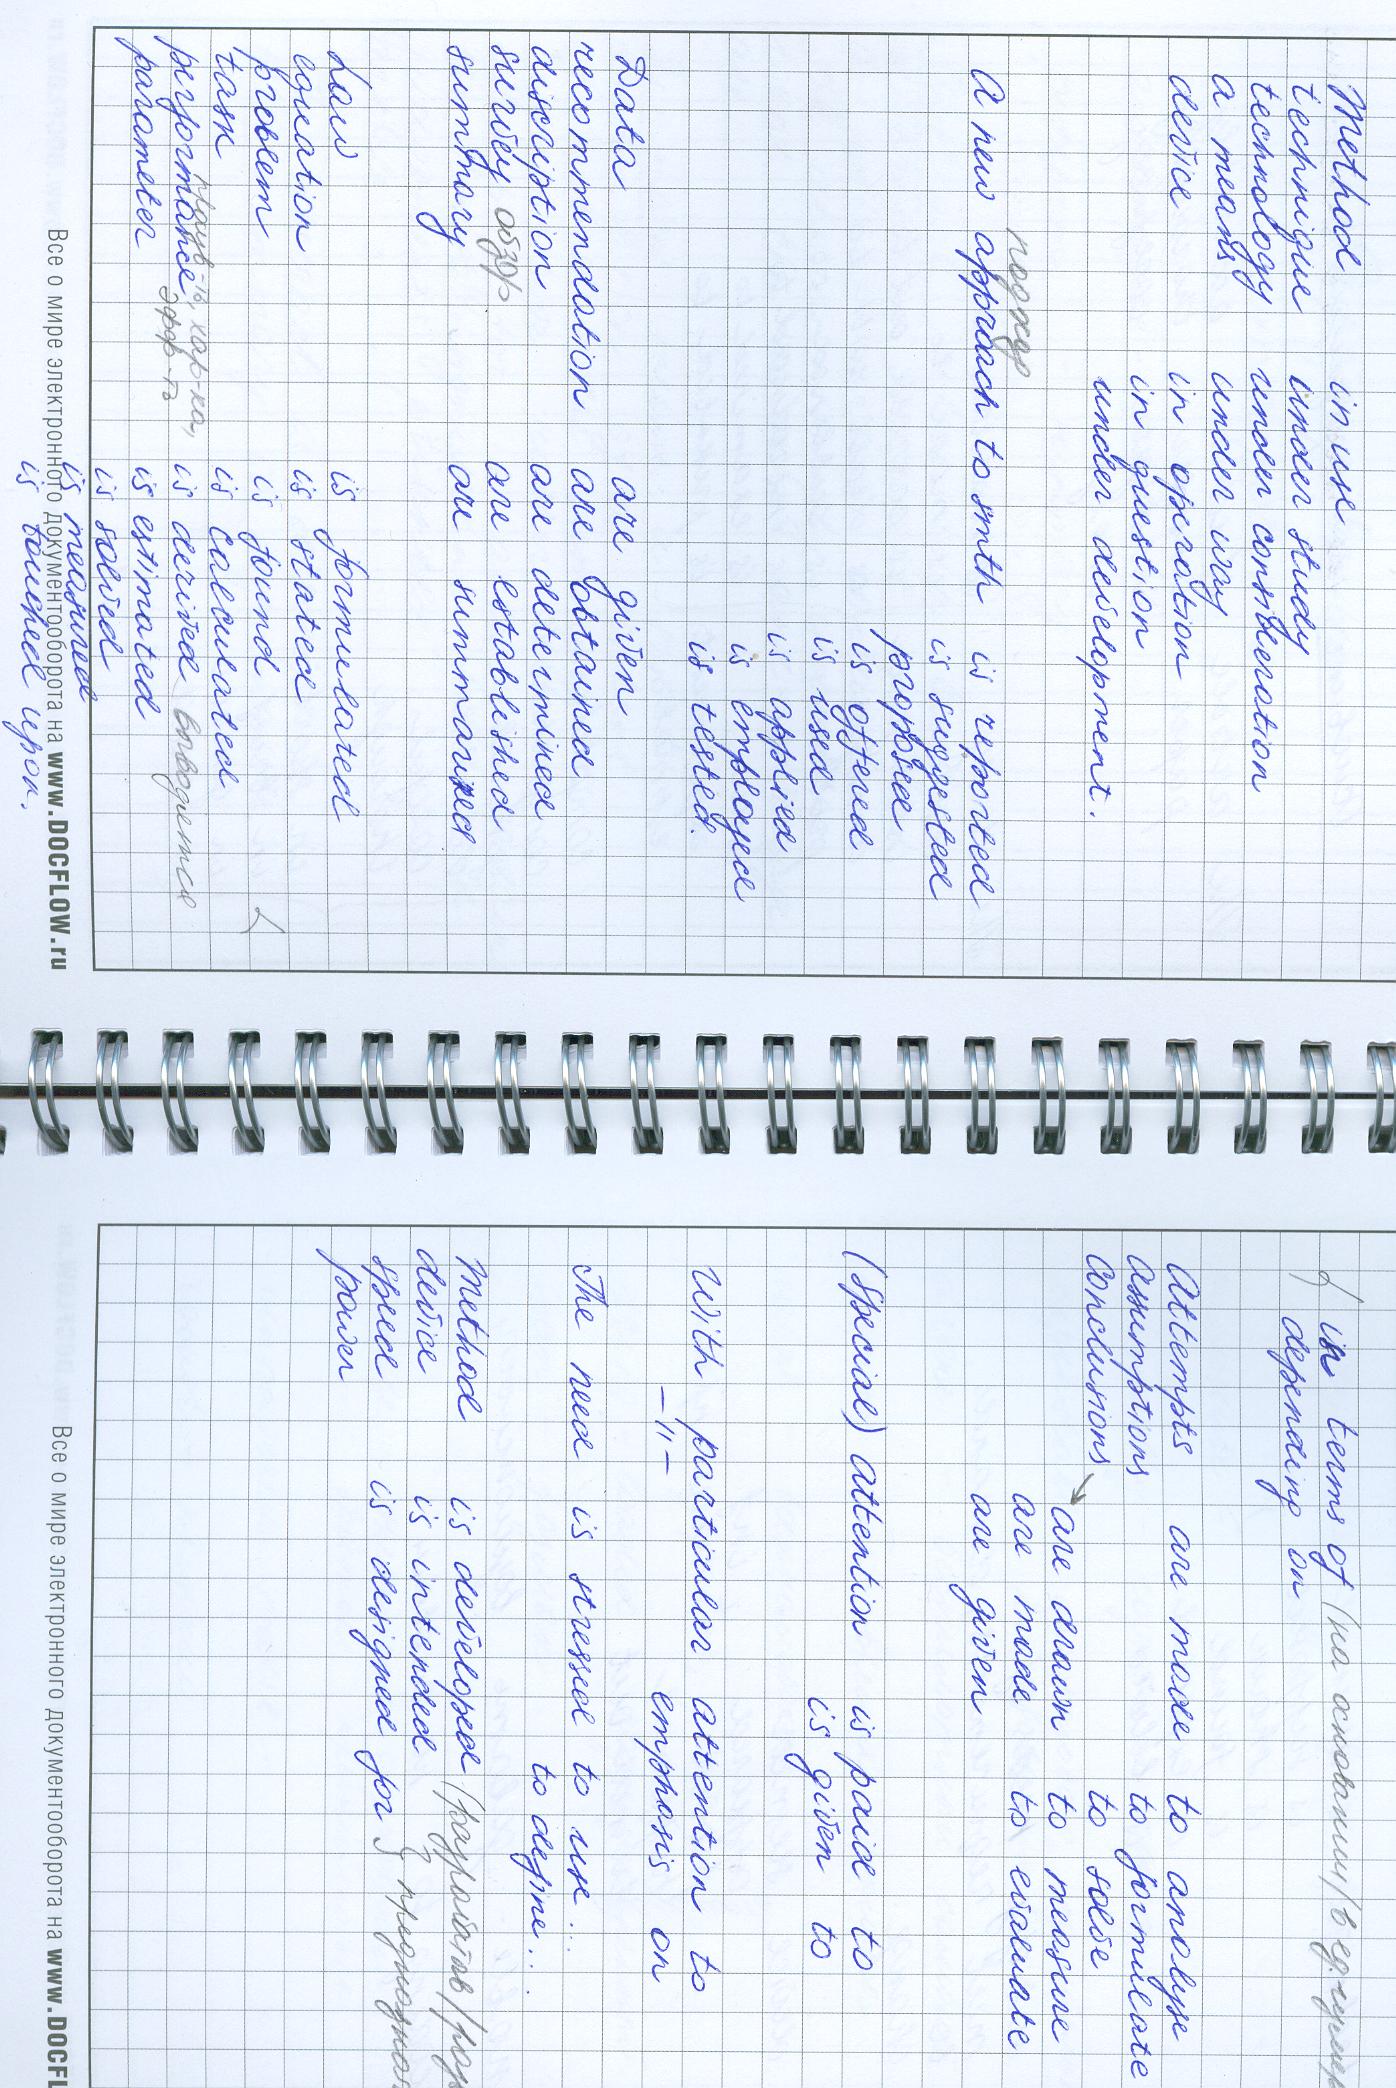 Method in use
technique under study
technology under consideration
a means under way
device in operation
in question
under development.
подход
A new approach to smth is reported
is suggested
proposed
is offered
is used
is applied
is employed
is tested.
Data are given
recommendation are obtained
discription are determined
survey обзор are established
summary are summarized
Law is formulated
equation is stated
problem is found
task is calculated
хар-ка,
performance, is derived выводится
эфф-ть
parameter is estimated
is solved
is measured
is touched upon.
Все о мире электронного документооборота на www.DOCFLOW.ru
in terms of (на основании/в
depending on
Attempts are made to analyse
assumptions to formulate
conclusions to solve
are drawn to measure
are made to evaluate
are given
(Special) attention is paid to
is given to
With particular attention to
-"- emphasis on
The need is stressed to use...
to define...
Method is developed
device is intended
speed is designed for
power
Все о мире электронного документооборота на www.DOCFL